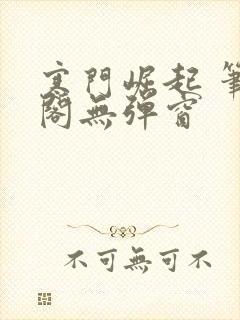 寒門崛起 筆
閣無彈窗
不可無可不